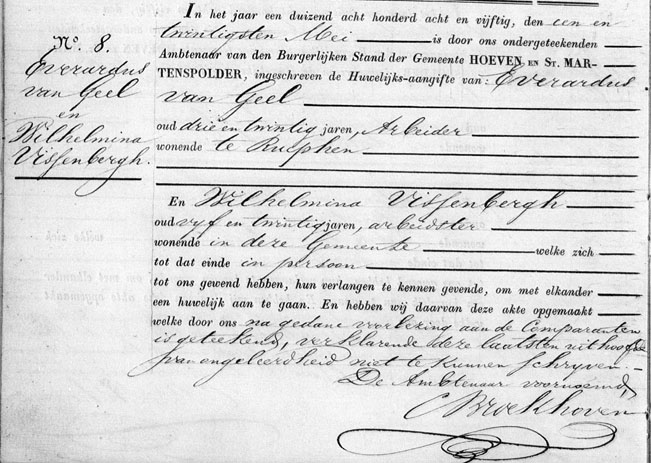 No. 8.
Everardus
van Geel
en
Wilhelmina
Vissenbergh.
In het jaar een duizend acht honderd acht en vijftig, den een en
twintigsten Mei is door ons ondergeteekenden
Ambtenaar van den Burgerlijken Stand der Gemeente HOEVEN EN ST. MAR-
TENSPOLDER, ingeschreven de Huwelijks-aangifte van: Everardus
van Geel
oud drie en twintig jaren, Arbeider
wonende te Rucphen.
En Wilhelmina Vissenbergh
oud vyf en twintig jaren, arbeidster
wonende in deze Gemeente welke zich
tot dat einde in persoon
tot ons gewend hebben, hun verlangen te kennen gevende, om met elkander
een huwelijk aan te gaan. En hebben wij daarvan deze akte opgemaakt
welke door ons na gedane voorlezing aan de Comparanten
is geteekend, verklarende deze laatsten uit hoofde
van ongeleerdheid niet te kunnen schryven.
De Ambtenaar voornoemd,
C Broekhoven